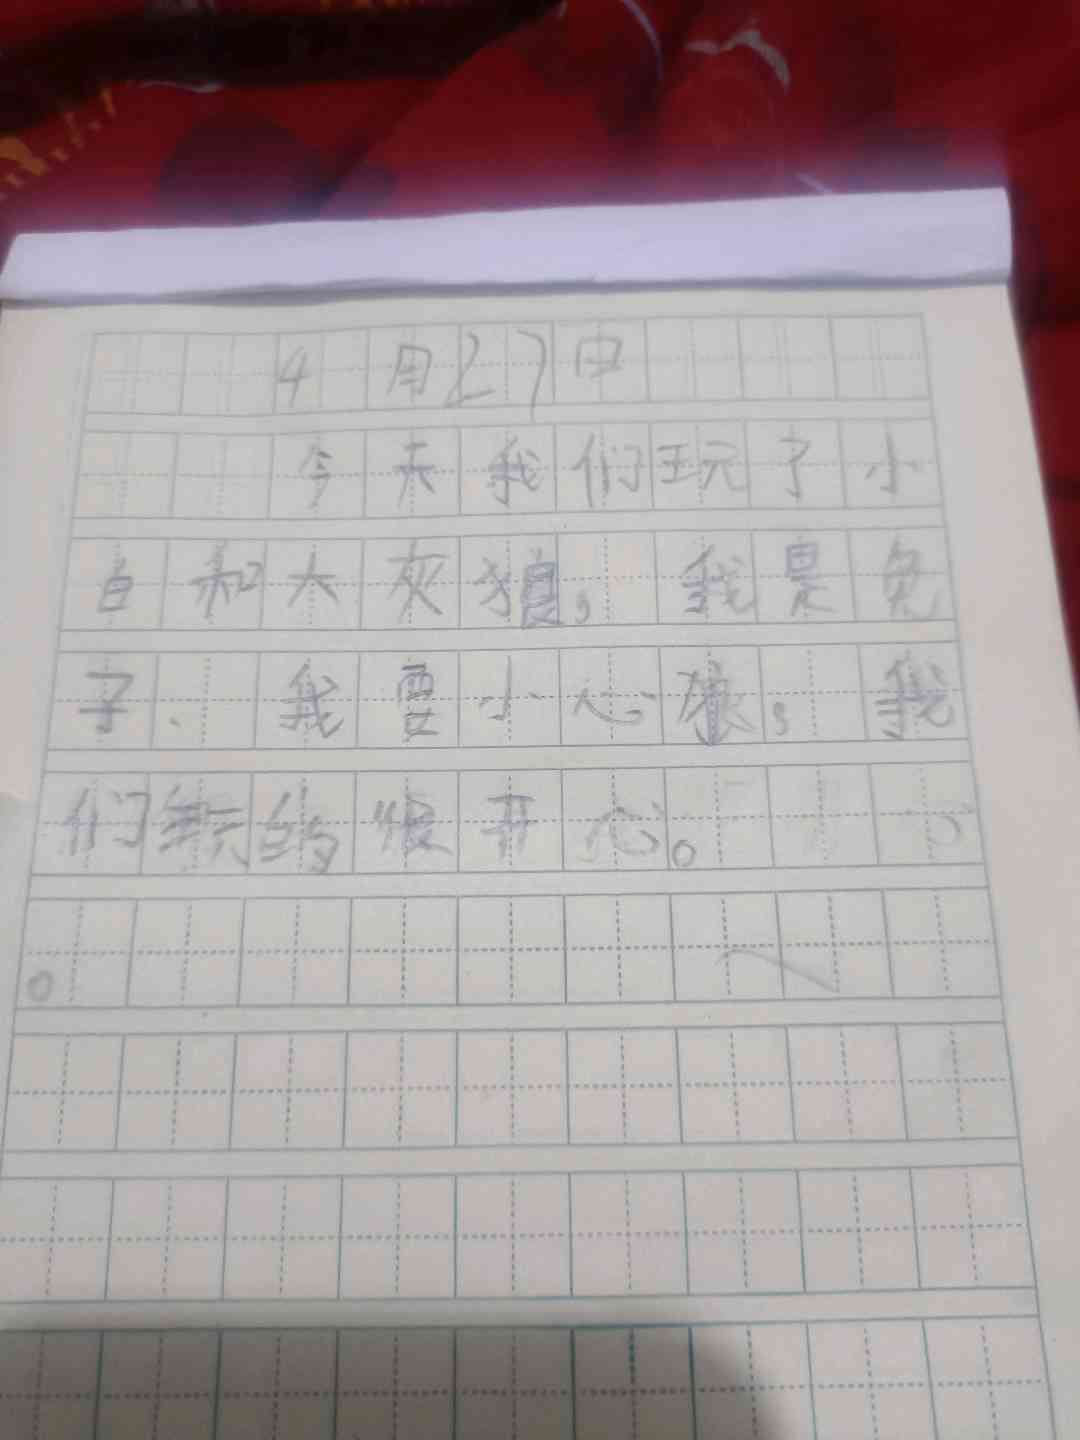 4月27日
今天我们玩了小
白和大灰狼，我是兔
子、我要小心狼，我
们玩的很开心。
。